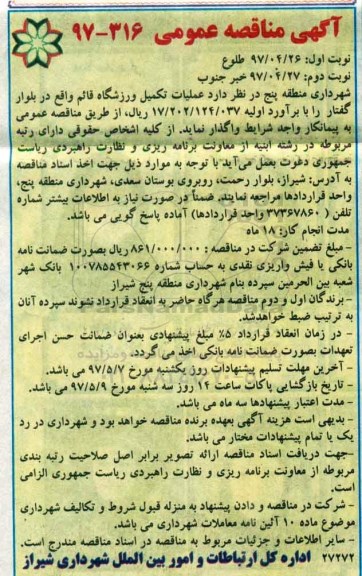 آگهی مناقصه عمومی ۳۱۶-۹۷
نوبت اول: ۹۷/۰۴/۲۶ طلوع
نوبت دوم: ۹۷/۰۴/۲۷ خبر جنوب
شهرداری منطقه پنج در نظر دارد عملیات تکمیل ورزشگاه قائم واقع در بلوار
گفتار را با برآورد اولیه ۱۷/۲۰۲/۱۲۴/۰۳۷ ریال، از طریق مناقصه عمومی
به پیمانکار واجد شرایط واگذار نماید. از کلیه اشخاص حقوقی دارای رتبه
مربوطه در رشته ابنیه از معاونت برنامه ریزی و نظارت راهبردی ریاست
جمهوری دعوت بعمل می‌آید با توجه به موارد ذیل جهت اخذ اسناد مناقصه
به آدرس: شیراز، بلوار رحمت، روبروی بوستان سعدی، شهرداری منطقه پنج،
واحد قراردادها مراجعه نمایند. ضمناً در صورت نیاز به اطلاعات بیشتر شماره
تلفن ( ۳۷۳۶۷۸۶۰ واحد قراردادها) آماده پاسخ گویی می باشد.
مدت انجام کار: ۱۸ ماه
- مبلغ تضمین شرکت در مناقصه : ۸۶۱/۰۰۰/۰۰۰ ریال بصورت ضمانت نامه
بانکی یا فیش واریزی نقدی به حساب شماره ۱۰۰۷۸۵۵۴۳۰۶۶ بانک شهر
شعبه بین الحرمین سپرده بنام شهرداری منطقه پنج شیراز
- برندگان اول و دوم مناقصه هرگاه حاضر به انعقاد قرارداد نشوند سپرده آنان
به ترتیب ضبط خواهدشد.
- در زمان انعقاد قرارداد ۵% مبلغ پیشنهادی بعنوان ضمانت حسن اجرای
تعهدات بصورت ضمانت نامه بانکی اخذ می گردد.
- آخرین مهلت تسلیم پیشنهادات روز یکشنبه مورخ ۹۷/۵/۷ می باشد.
- تاریخ بازگشایی پاکات ساعت ۱۴ روز سه شنبه مورخ ۹۷/۵/۹ می باشد.
- مدت اعتبار پیشنهادها سه ماه می باشد.
- بدیهی است هزینه آگهی بعهده برنده مناقصه خواهد بود و شهرداری در رد
یک یا تمام پیشنهادات مختار می باشد.
-جهت دریافت اسناد مناقصه ارائه تصویر برابر اصل صلاحیت رتبه بندی
مربوطه از معاونت برنامه ریزی و نظارت راهبردی ریاست جمهوری الزامی
است.
- شرکت در مناقصه و دادن پیشنهاد به منزله قبول شروط و تکالیف شهرداری
موضوع ماده ۱۰ آئین نامه معاملات شهرداری می باشد.
- سایر اطلاعات و جزئیات مربوط به مناقصه در اسناد مناقصه مندرج است.
۲۷۲۷۲ اداره کل ارتباطات و امور بین الملل شهرداری شیراز